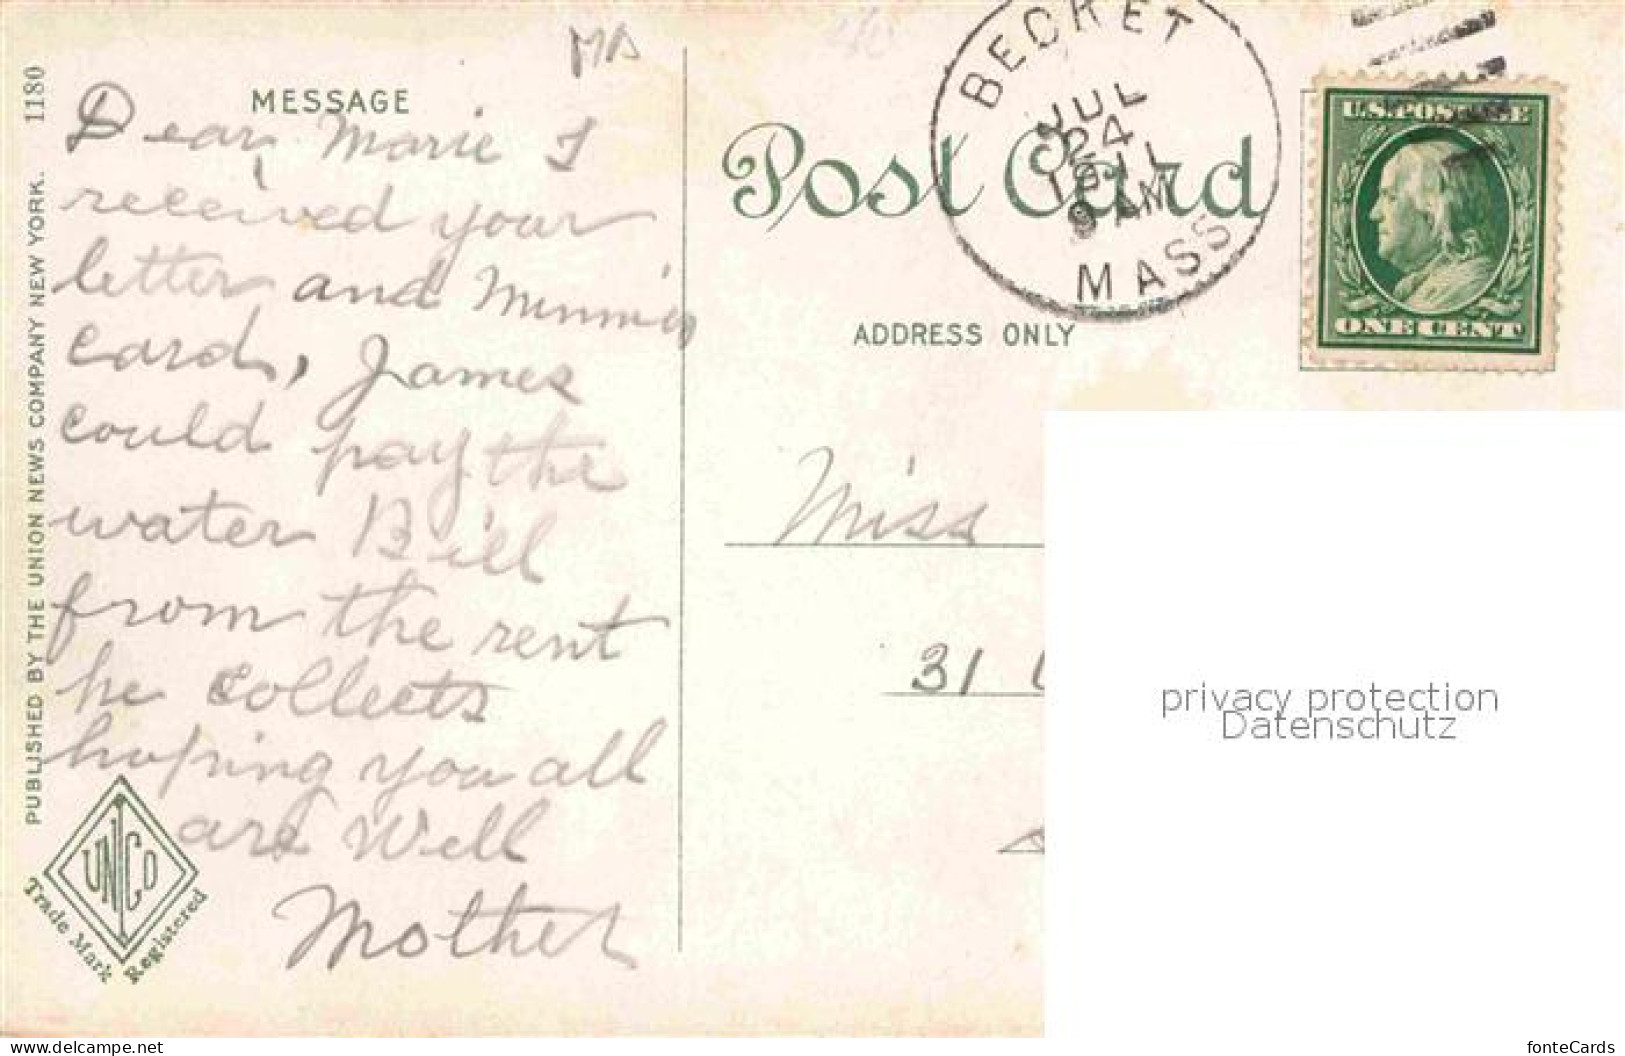 MA
MESSAGE
Dear Marie I
received your
letter and Minnies
card, James
could pay the
water Bill
from the rent
he collects
hoping you all
are Well
Mother
PUBLISHED BY THE UNION NEWS COMPANY NEW YORK. 1180
UNCO
Trade Mark Registered
Post Card
BECKET
JUL
24
1911
9 AM
MASS
ADDRESS ONLY
U.S.POSTAGE
ONE CENT
Miss
31
privacy protection
Datenschutz
www.delcampe.net
fonteCards